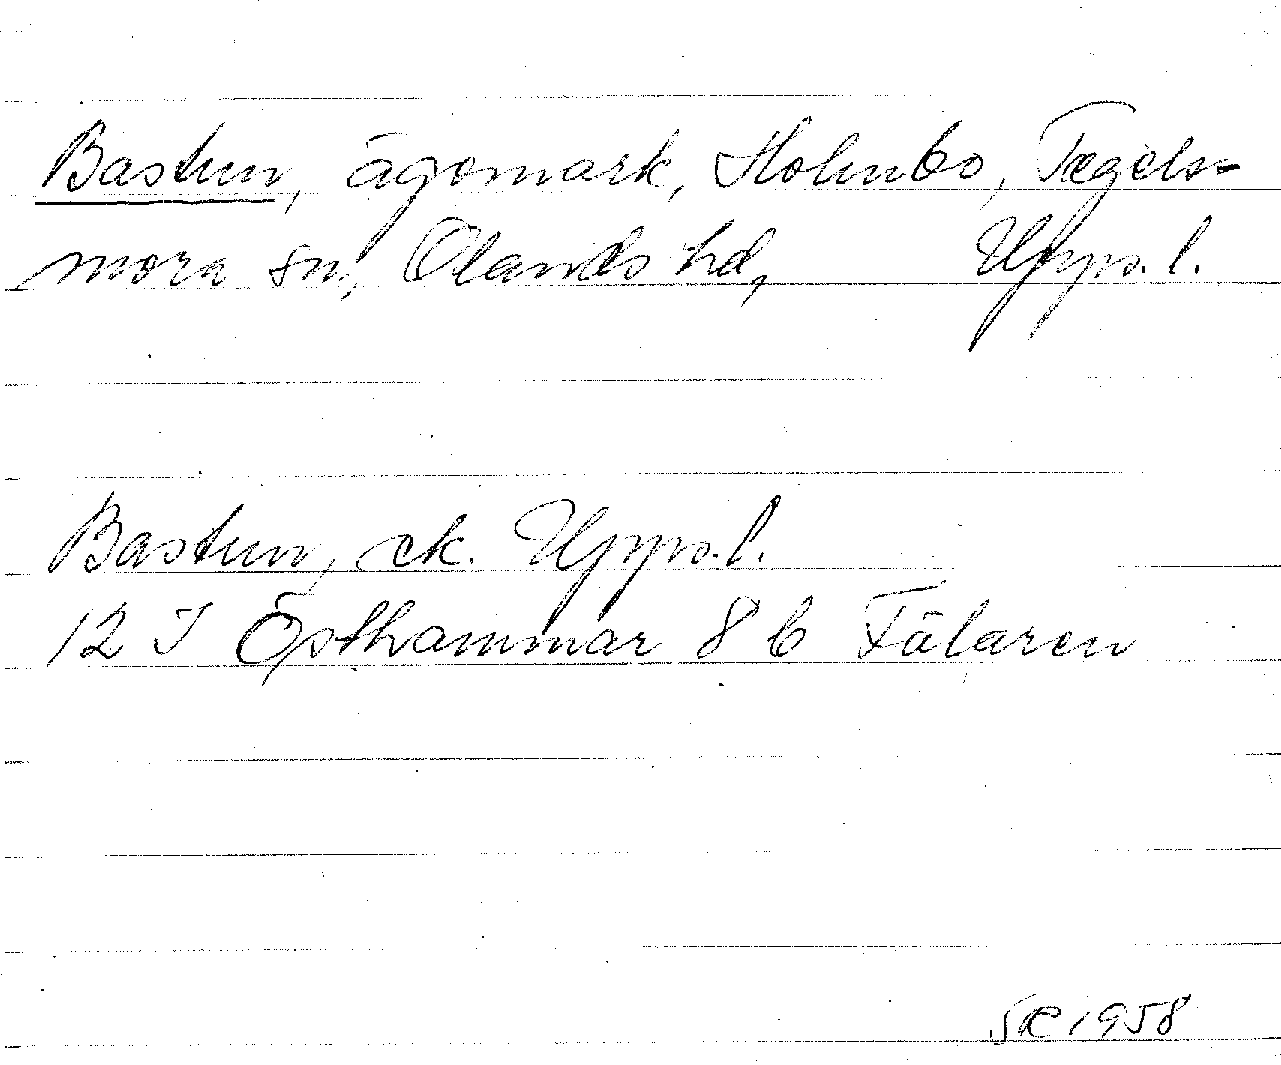 Bastun, ägomark, Holmbo, Tegels-
mora sn, Olands hd, Upps.l.
Bastun, ek. Upps.l.
12 I Östhammar 8 b Fälaren
1958